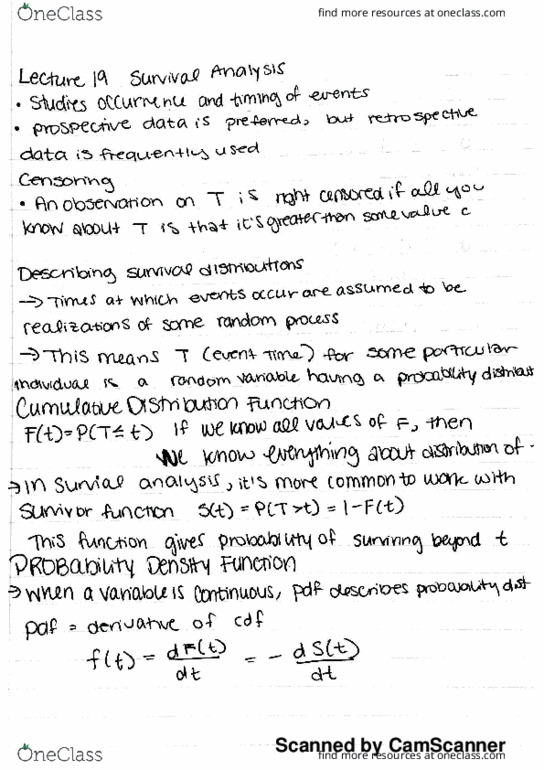 OneClass
find more resources at oneclass.com
Lecture 19 Survival Analysis
• Studies occurrence and timing of events
• prospective data is preferred, but retrospective
data is frequently used
Censoring
• An observation on T is right censored if all you
know about T is that it's greater than some value c
Describing survival distributions
→ Times at which events occur are assumed to be
realizations of some random process
→ This means T (event time) for some particular
individual is a random variable having a probability distribut
Cumulative Distribution Function
F(t)=P(T≤t) If we know all values of F, then
We know everything about distribution of
→ in survial analysis, it's more common to work with
survivor function S(t) = P(T>t) = 1-F(t)
This function gives probability of surviving beyond t
PROBability Density Function
→ when a variable is continuous, pdf describes probability dist
pdf = derivative of cdf
f(t) = dF(t)/dt = - dS(t)/dt
Scanned by CamScanner
OneClass
find more resources at oneclass.com